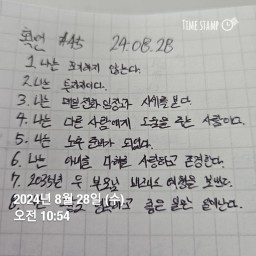 TIME STAMP
확언 #45 24.08.28
1. 나는 포기하지 않는다.
2. 나는 투자자이다.
3. 나는 매일 전화 임장과 시세를 본다.
4. 나는 다른 사람에게 도움을 주는 사람이다.
5. 나는 노후 준비가 되었다.
6. 나는 아내를 더 사랑하고 존경한다.
7. 2035년 두 부모님 여행을 보냈다.
2024년 8월 28일 (수)
8. 나는 좋은
오전 10:54